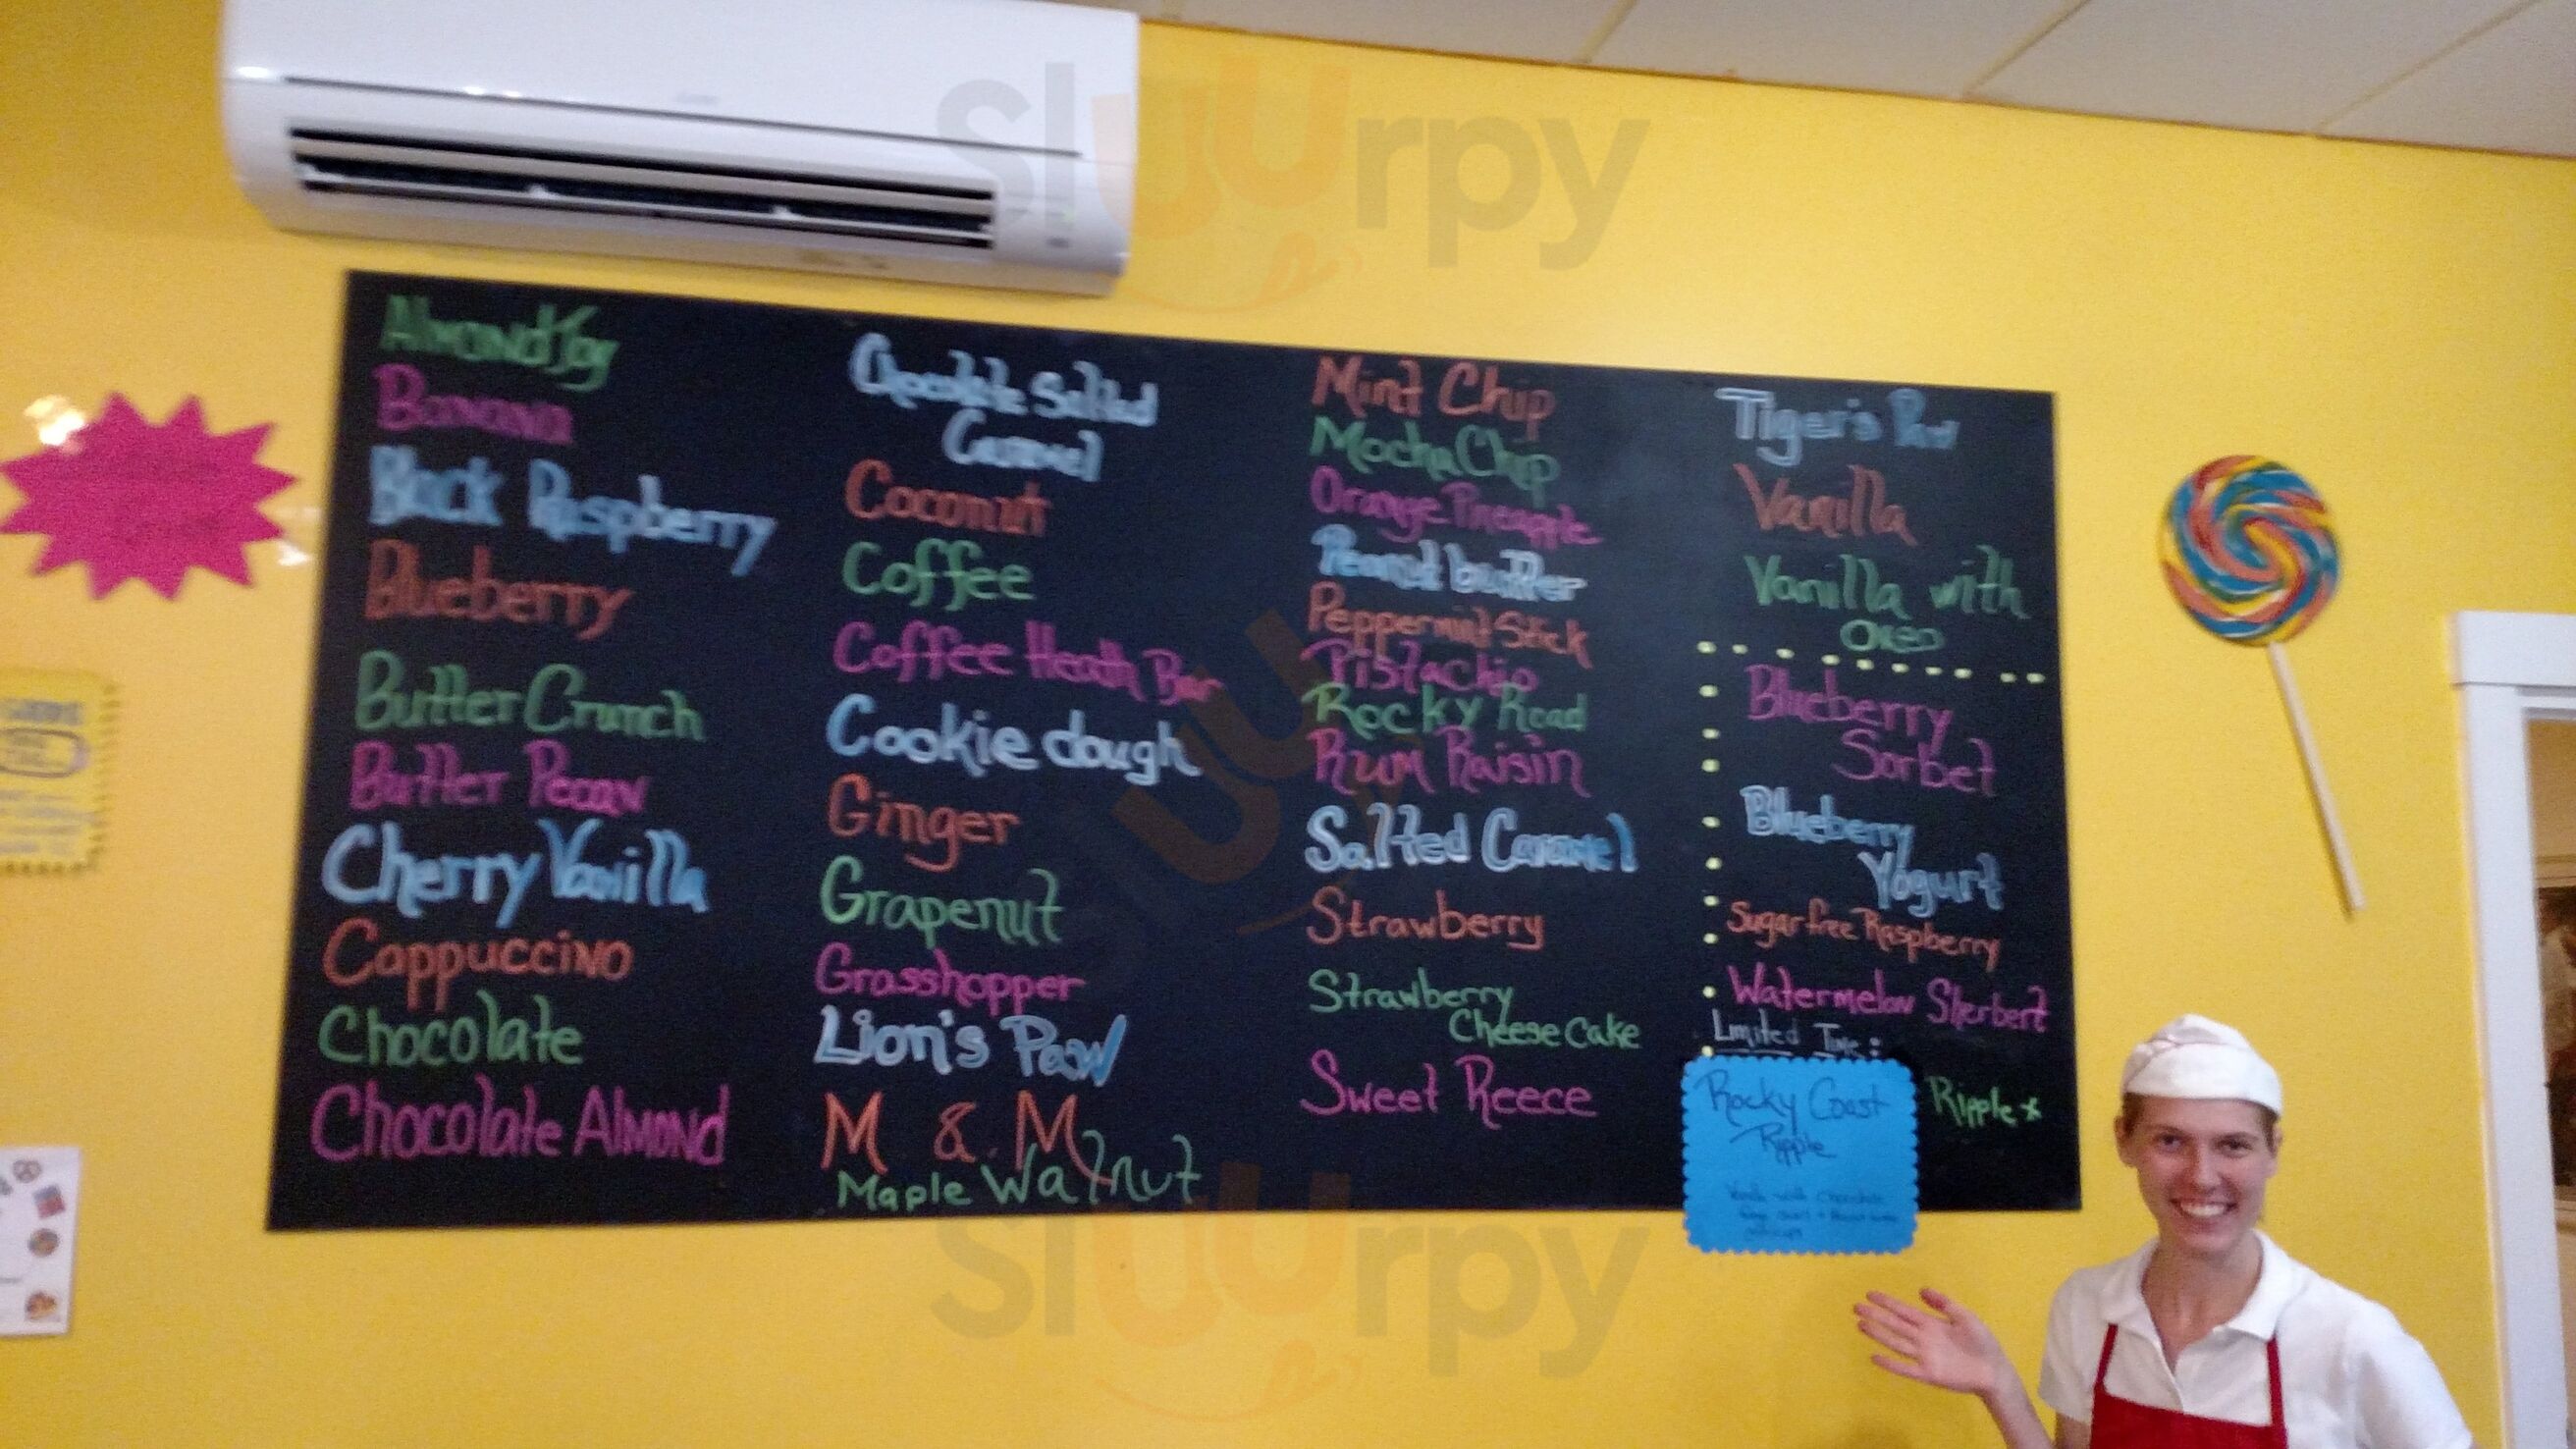 Almond Joy
Banana
Black Raspberry
Blueberry
Butter Crunch
Butter Pecan
Cherry Vanilla
Cappuccino
Chocolate
Chocolate Almond
Chocolate Salted
Caramel
Coconut
Coffee
Coffee Heath Bar
Cookie dough
Ginger
Grapenut
Grasshopper
Lion's Paw
M & M
Maple Walnut
Mint Chip
Mocha Chip
Orange Pineapple
Peanut butter
Peppermint Stick
Pistachio
Rocky Road
Rum Raisin
Salted Caramel
Strawberry
Strawberry
Cheese Cake
Sweet Reece
Tiger's Paw
Vanilla
Vanilla with
Oreo
Blueberry
Sorbet
Blueberry
Yogurt
Sugar free Raspberry
Watermelon Sherbert
Limited Time:
Rocky Coast
Ripple
Ripple *
sluurpy
sluurpy